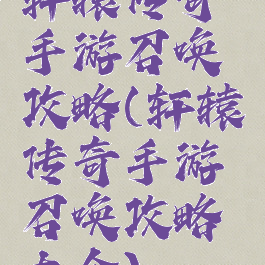 轩辕传奇
手游召唤
攻略(轩辕
传奇手游
召唤攻略
大全)